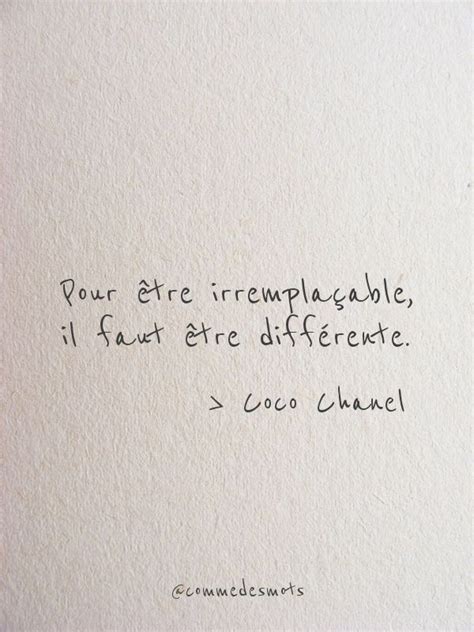 Pour être irremplaçable,
il faut être différente.
> Coco Chanel
@commedesmots